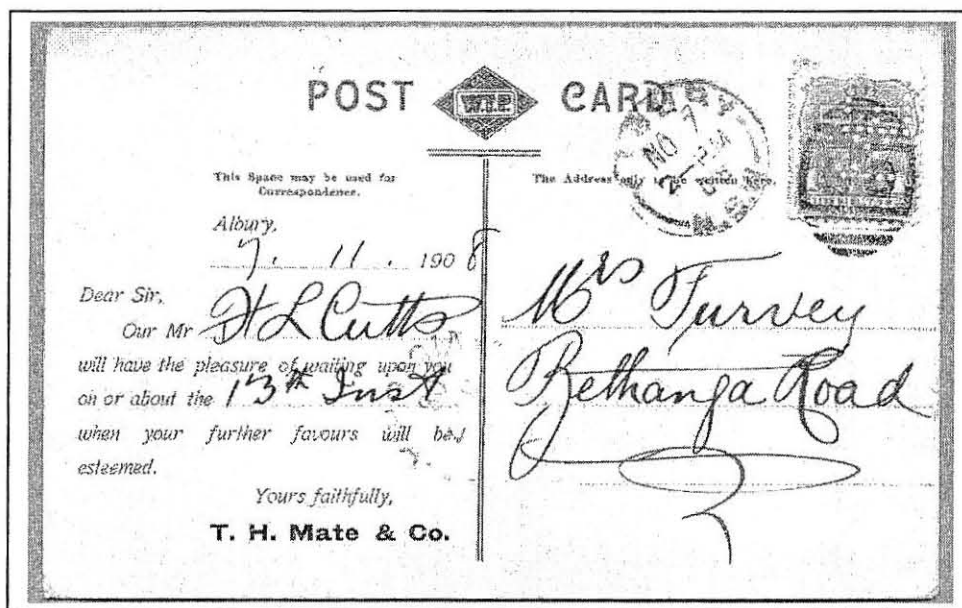 POST W.T.P. CARD
This Space may be used for
Correspondence.
The Address only to be written here.
NO 7
Albury,
7. 11. 1908
Dear Sir,
Our Mr H L Cutts
will have the pleasure of waiting upon you
on or about the 13th Inst
when your further favours will be
esteemed.
Yours faithfully,
T. H. Mate & Co.
Mrs Turvey
Bethanga Road